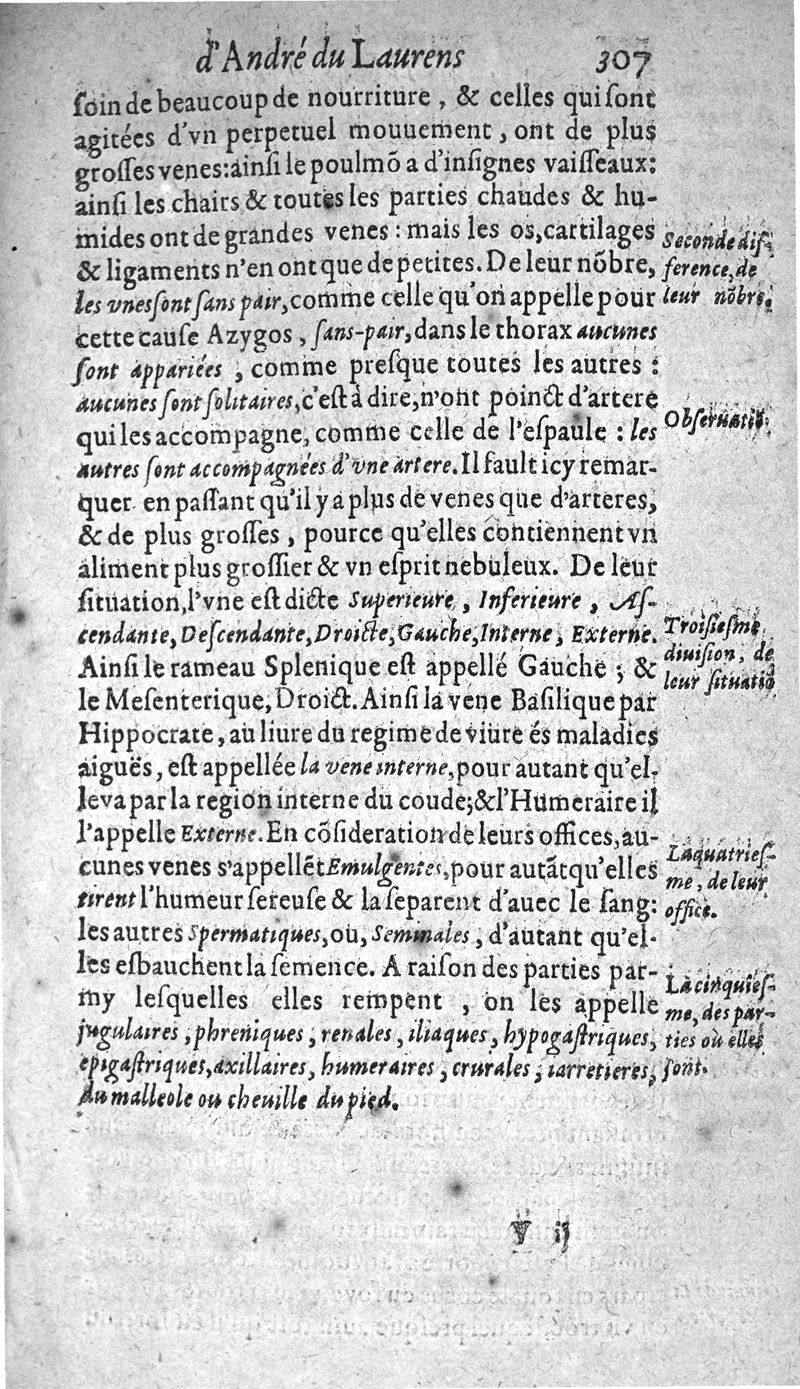 d'André du Laurens 307
ſoin de beaucoup de nourriture, & celles qui ſont
agitées d'vn perpetuel mouuement, ont de plus
groſſes venes: ainſi le poulmõ a d'inſignes vaiſſeaux:
ainſi les chairs & toutes les parties chaudes & hu-
mides ont de grandes venes: mais les os, cartilages
& ligaments n'en ont que de petites. De leur nõbre,
les vnes ſont ſans pair, comme celle qu'on appelle pour
cette cauſe Azygos, ſans-pair, dans le thorax aucunes
ſont appariées, comme preſque toutes les autres:
aucunes ſont ſolitaires, c'eſt à dire, n'ont poinct d'artere
qui les accompagne, comme celle de l'eſpaule: les
autres ſont accompagnées d'vne artere. Il fault icy remar-
quer en paſſant qu'il y a plus de venes que d'arteres,
& de plus groſſes, pource qu'elles contiennent vn
aliment plus groſſier & vn eſprit nebuleux. De leur
ſituation, l'vne eſt dicte Superieure, Inferieure, Aſ-
cendante, Deſcendante, Droicte, Gauche, Interne, Externe.
Ainſi le rameau Splenique eſt appellé Gauche; &
le Meſenterique, Droict. Ainſi la vene Baſilique par
Hippocrate, au liure du regime de viure és maladies
aiguës, eſt appellée la vene interne, pour autant qu'el-
le va par la region interne du coude; & l'Humeraire il
l'appelle Externe. En cõſideration de leurs offices, au-
cunes venes s'appellẽt Emulgentes, pour autãt qu'elles
tirent l'humeur ſereuſe & la ſeparent d'auec le ſang:
les autres Spermatiques, ou, Seminales, d'autant qu'el-
les esbauchent la ſemence. A raiſon des parties par-
my leſquelles elles rempent, on les appelle
jugulaires, phreniques, renales, iliaques, hypogaſtriques,
epigaſtriques, axillaires, humeraires, crurales, iarretieres,
du malleole ou cheuille du pied.
V ij
Seconde diſ-
ference, de
leur nõbre.
Obſeruatiõ.
Troiſieſme
diuiſion, de
leur ſituatiõ
La quatrieſ-
me, de leur
office.
La cinquieſ-
me, des par-
ties où elles
ſont.